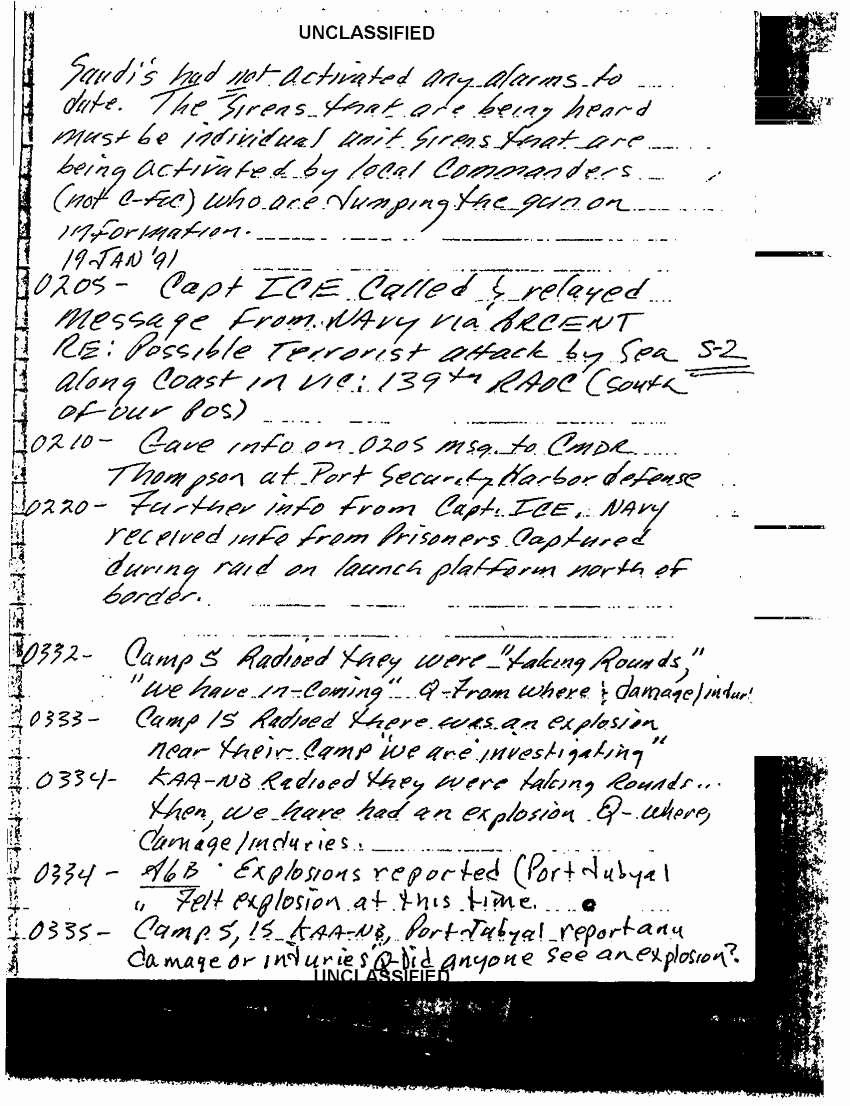 UNCLASSIFIED
Saudi's had not activated any alarms to
date. The Sirens that are being heard
must be individual unit sirens that are
being activated by local Commanders
(not C-FEC) who are Jumping the gun on
information.
19 JAN '91
0205- Capt ICE Called & relayed
Message From NAvy via ARCENT
RE: Possible Terrorist attack by Sea S-2
along Coast in vic: 139th RAOC (South
of our Pos)
0210- Gave info on 0205 msg. to CMDR
Thompson at Port Security Harbor defense
0220- Further info From Capt. ICE. NAVy
received info from Prisoners Captured
during raid on launch platform north of
border.
0332- Camp 5 Radioed they were "taking Rounds,"
"We have in-Coming" Q-From where & damage/injur!
0333- Camp 15 Radioed there was an explosion
near their Camp "we are investigating"
0334- KAA-NB Radioed they were taking Rounds...
then, we have had an explosion Q- where,
Damage/injuries.
0334- A6B Explosions reported (Port Jubyal
" Felt explosion at this time.
0335- Camp 5, 15 KAA-NB, Port-Jubyal report any
damage or injuries Q-Did anyone see an explosion?
UNCLASSIFIED